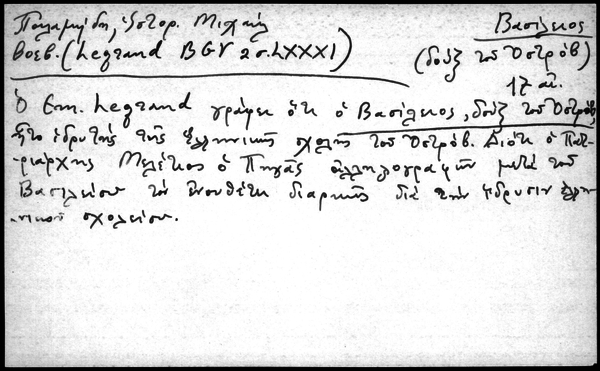 Παλαμήδη, Ἱστορ. Μιχαὴλ
Βοεβ. (Legrand BGV 2 σ. LXXXI)
Βασίλειος
(δοὺξ τοῦ Ὀστρὸβ)
17 αἰ.
Ὁ Em. Legrand γράφει ὅτι ὁ Βασίλειος, δοὺξ τοῦ Ὀστρὸβ,
ἦτο ἱδρυτὴς τῆς Ἑλληνικῆς σχολῆς τοῦ Ὀστρόβ. Διότι ὁ Πατ-
ριάρχης Μελέτιος ὁ Πηγᾶς ἀλληλογραφῶν μετὰ τοῦ
Βασιλείου τὸν ἐνουθέτει διαρκῶς διὰ τὴν ἵδρυσιν ἑλλη-
νικοῦ σχολείου.